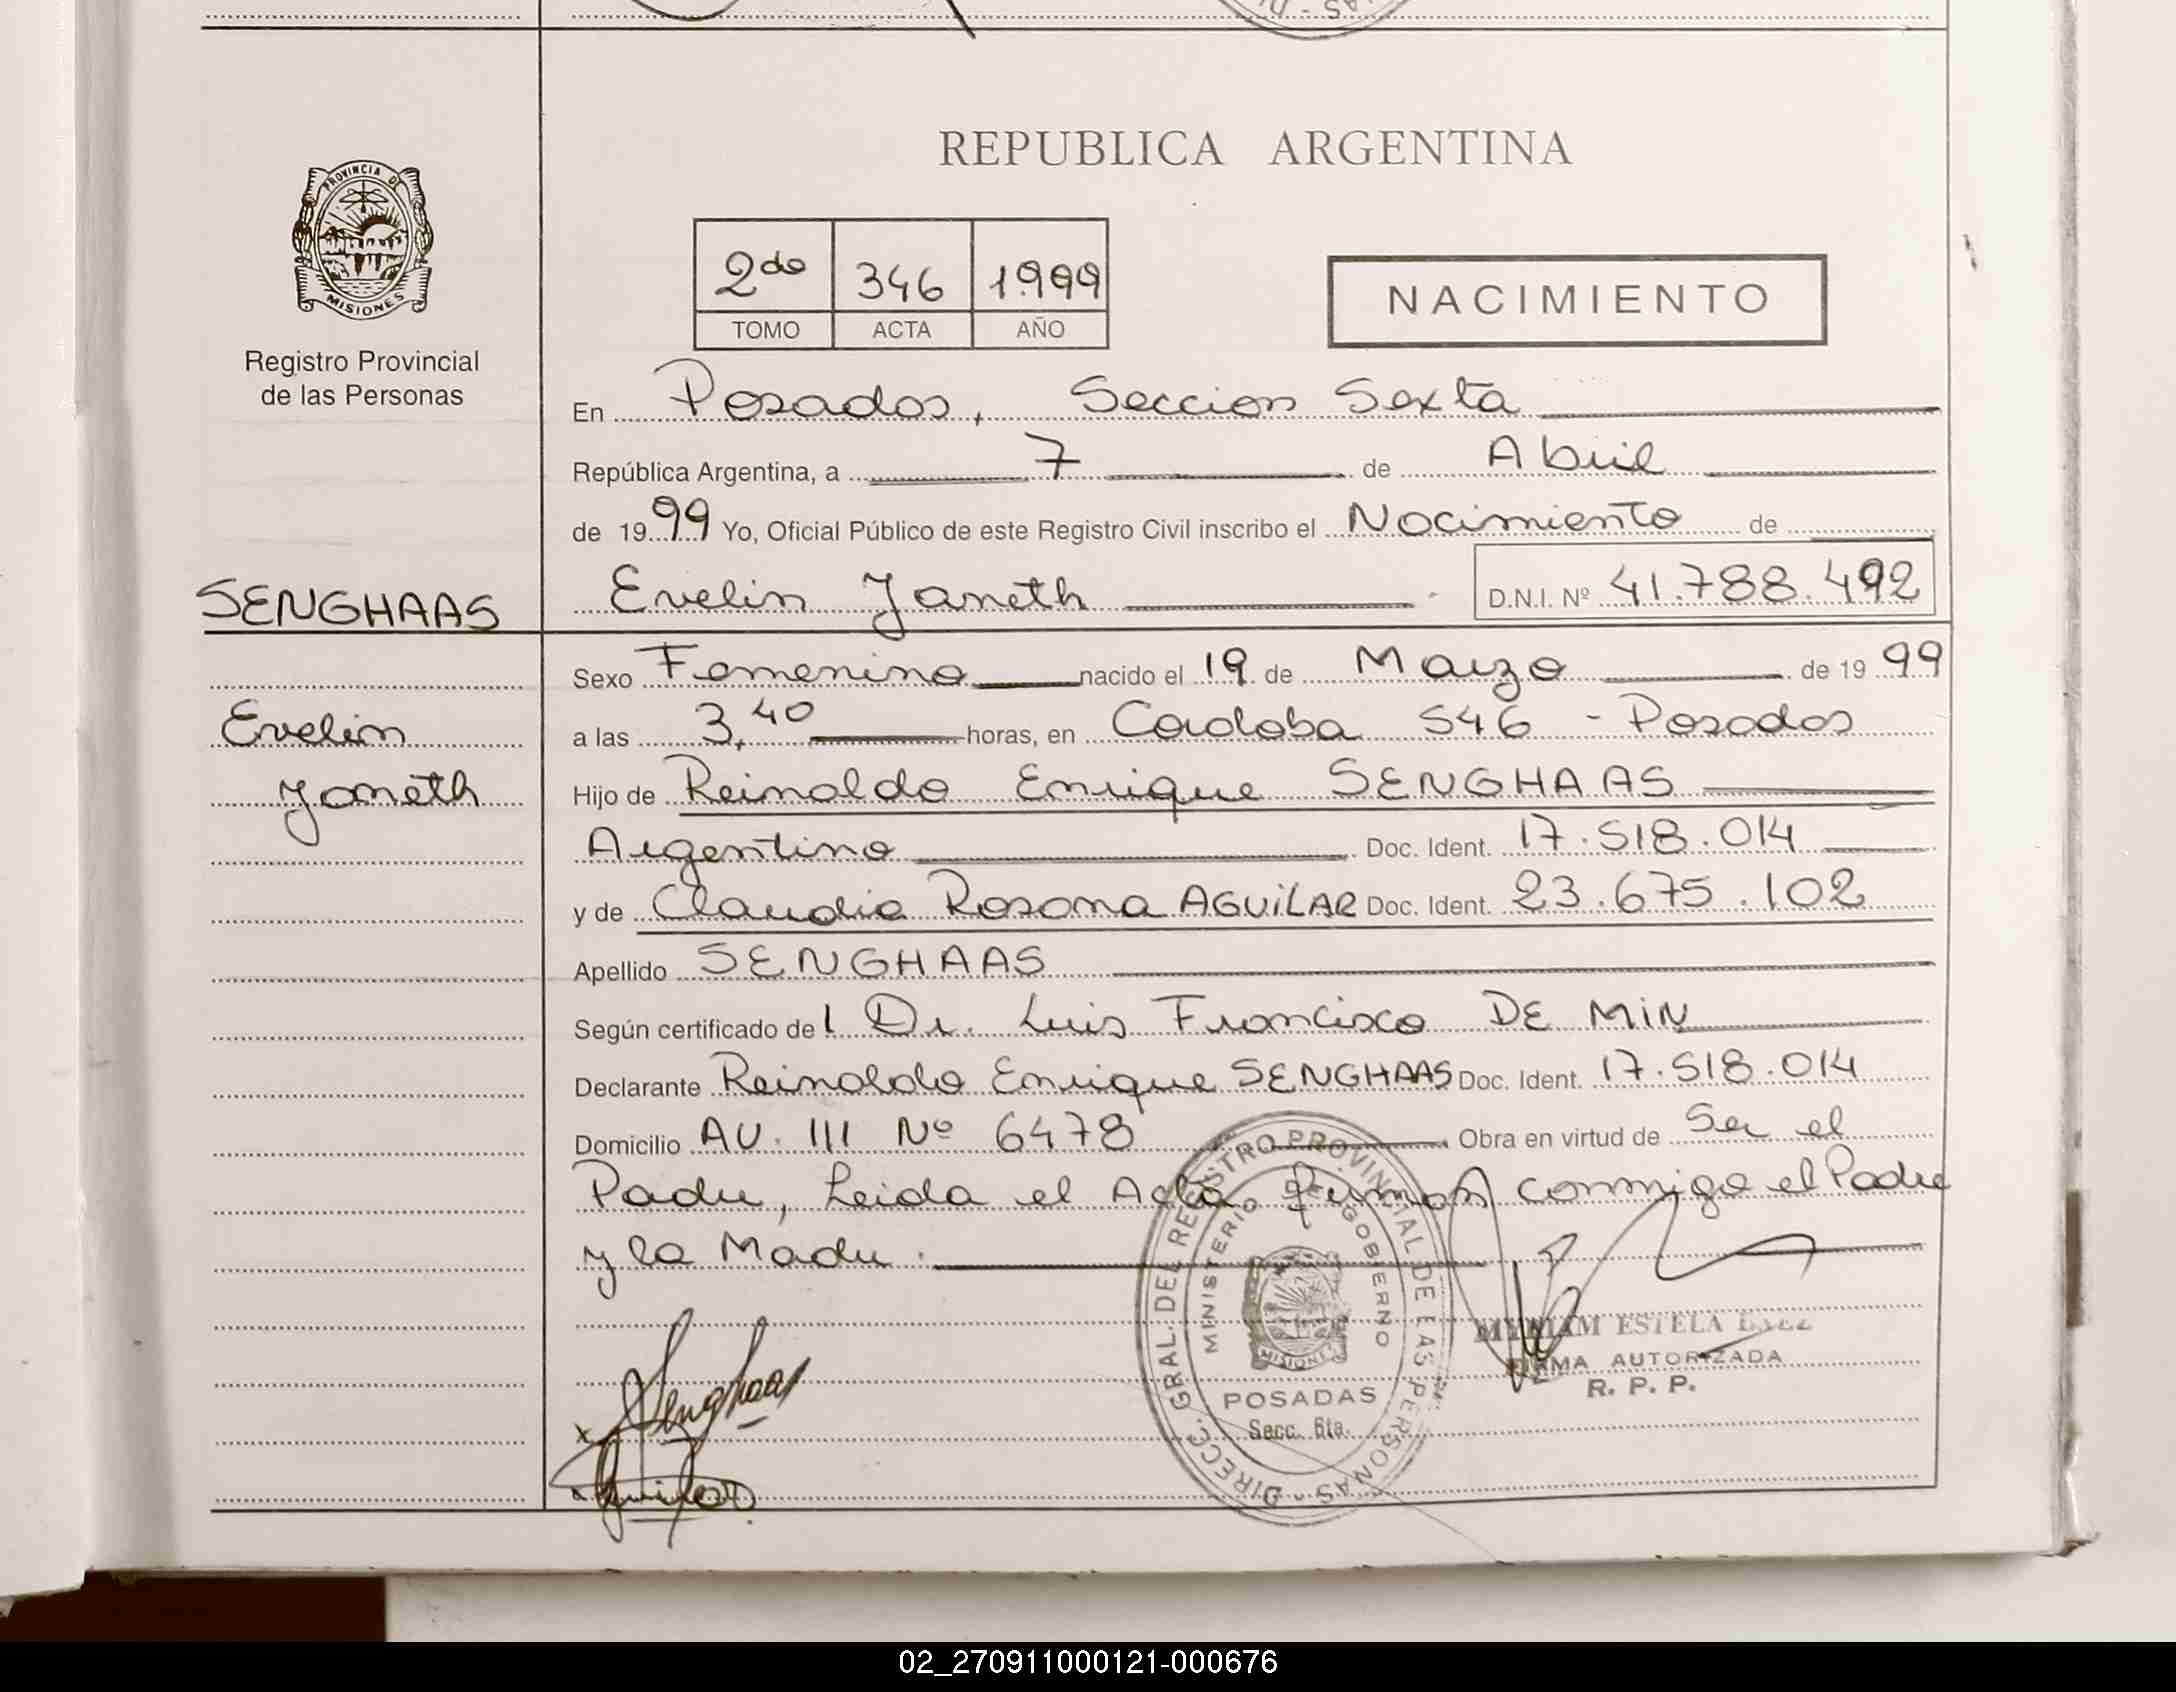 REPUBLICA ARGENTINA
PROVINCIA DE
MISIONES
Registro Provincial
de las Personas
2do 346 1.999
TOMO ACTA AÑO
NACIMIENTO
En Posadas, Seccion Sexta
República Argentina, a 7 de Abril
de 1999 Yo, Oficial Público de este Registro Civil inscribo el Nacimiento de
SENGHAAS Evelin Janeth D.N.I. Nº 41.788.492
Sexo Femenino nacido el 19 de Marzo de 1999
Evelin a las 3,40 horas, en Cordoba 546 - Posadas
Janeth Hijo de Reinaldo Enrique SENGHAAS
Argentino Doc. Ident. 17.518.014
y de Claudia Rosana AGUiLAR Doc. Ident. 23.675.102
Apellido SENGHAAS
Según certificado del Dr. Luis Francisco DE MiN
Declarante Reinaldo Enrique SENGHAAS Doc. Ident. 17.518.014
Domicilio AV. III Nº 6478 Obra en virtud de Ser el
Padre, Leida el Acta firman conmigo el Padre
y la Madre.
DIRECC. GRAL. DEL REGISTRO PROVINCIAL DE LAS PERSONAS
MINISTERIO DE GOBIERNO
MISIONES
POSADAS
Secc. 6ta.
MYRIAM ESTELA BAEZ
FIRMA AUTORIZADA
R. P. P.
x Senghaas
x Aguilar
02_270911000121-000676